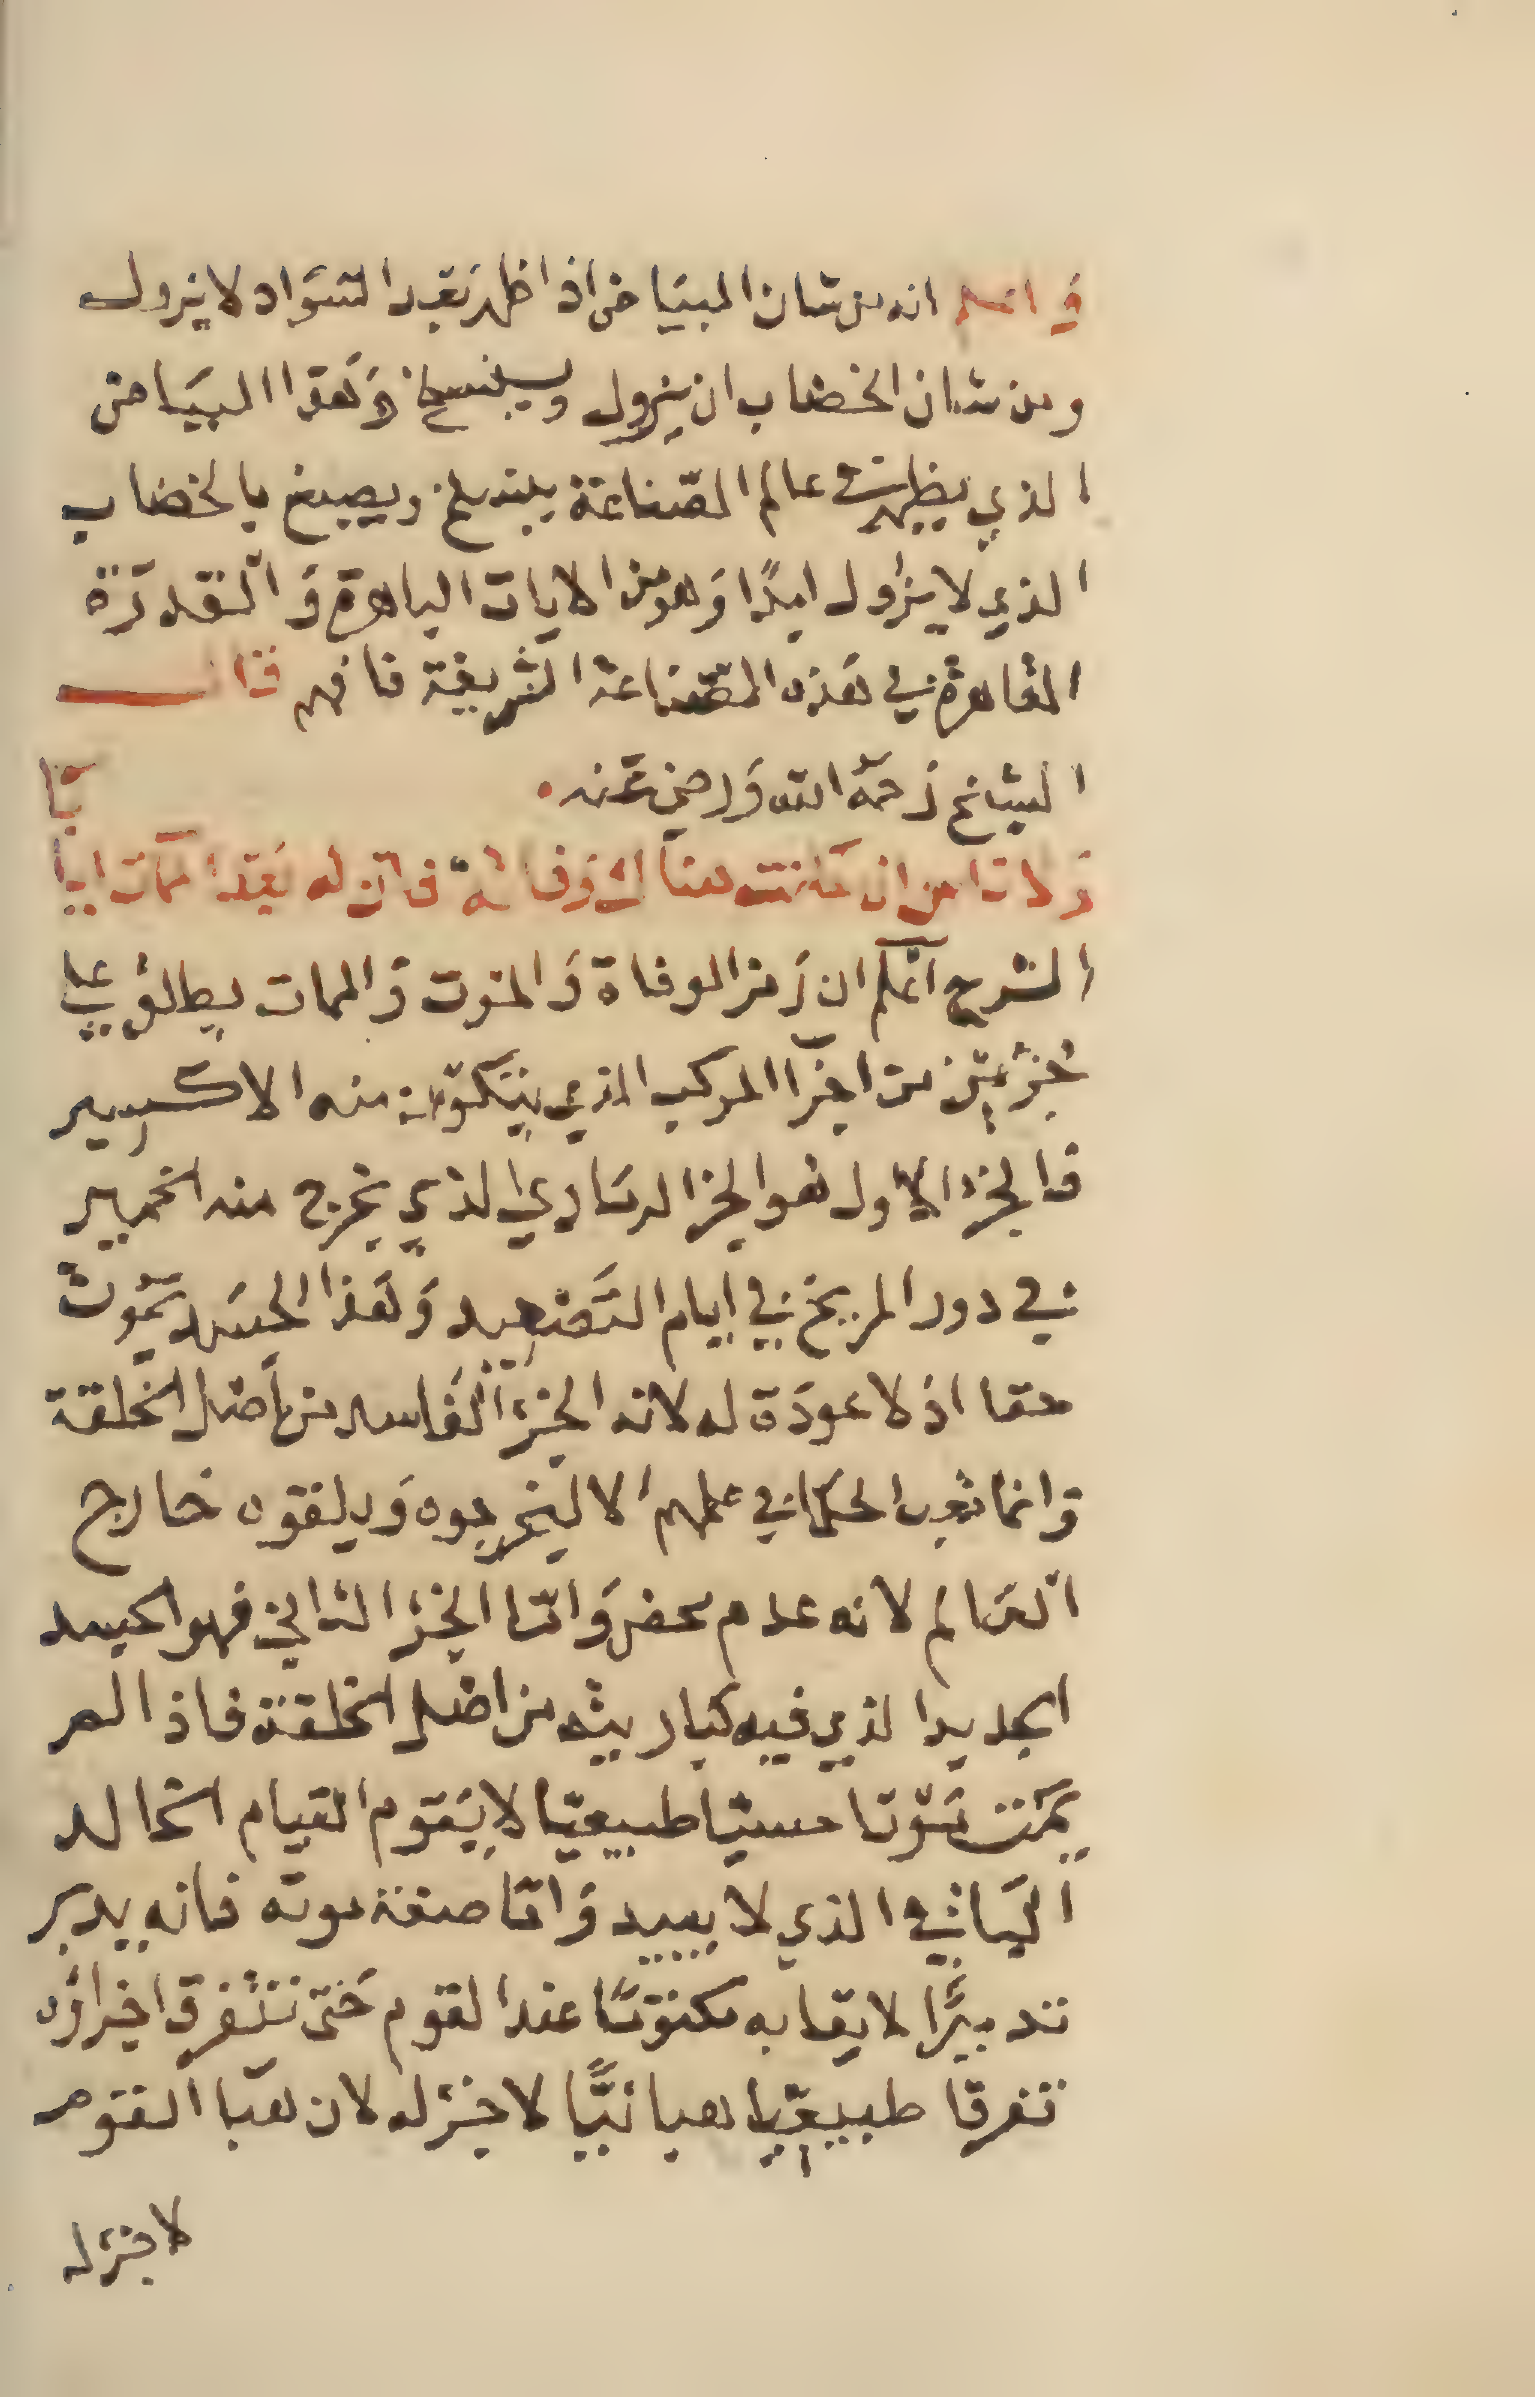 واعلم انه من شان البياض اذا ظهر بعد السواد لا يزول
ومن شان الخضاب ان يزول وينسلخ وهذا البياض
الذي يظهر في عالم الصناعة ينسلخ ويصبغ بالخضاب
الذي لا يزول ابدًا وهو من الايات الباهرة والقدرة
القاهرة في هذه الصناعة الشريفة فافهم قال
الشيخ رحمه الله ورضي عنه
الشرح اعلم ان رمز الوفاة والموت والممات يطلق على
جزئين من اجزآ المركب الذي يتكون منه الاكسير
فالجزء الاول هو الجزا الرمادي الذي يخرج منه الخمير
في دور المريخ في ايام التصعيد وهذا الجسد يموت
حقا اذ لا عودة له لانه الجزء الفاسد من أصل الخلقة
وانما تعب الحكما في عملهم الا ليخرجوه ويلقوه خارج
العالم لانه عدم محض واما الجزء الثاني فهو الجسد
الجديد الذي فيه كباريته من اصل الخلقة فاذا لم
يمت موتا حسيا طبيعيا لا يقوم القيام الخالد
الباقي الذي لا يبيد واما صفة موته فانه يدبر
تدبيرًا لايقا به مكتومًا عند القوم حتى تتفرق اجزاؤه
تفرقا طبيعيا هبائيًا لا جزء له لان هبا القوم
لا جزء له